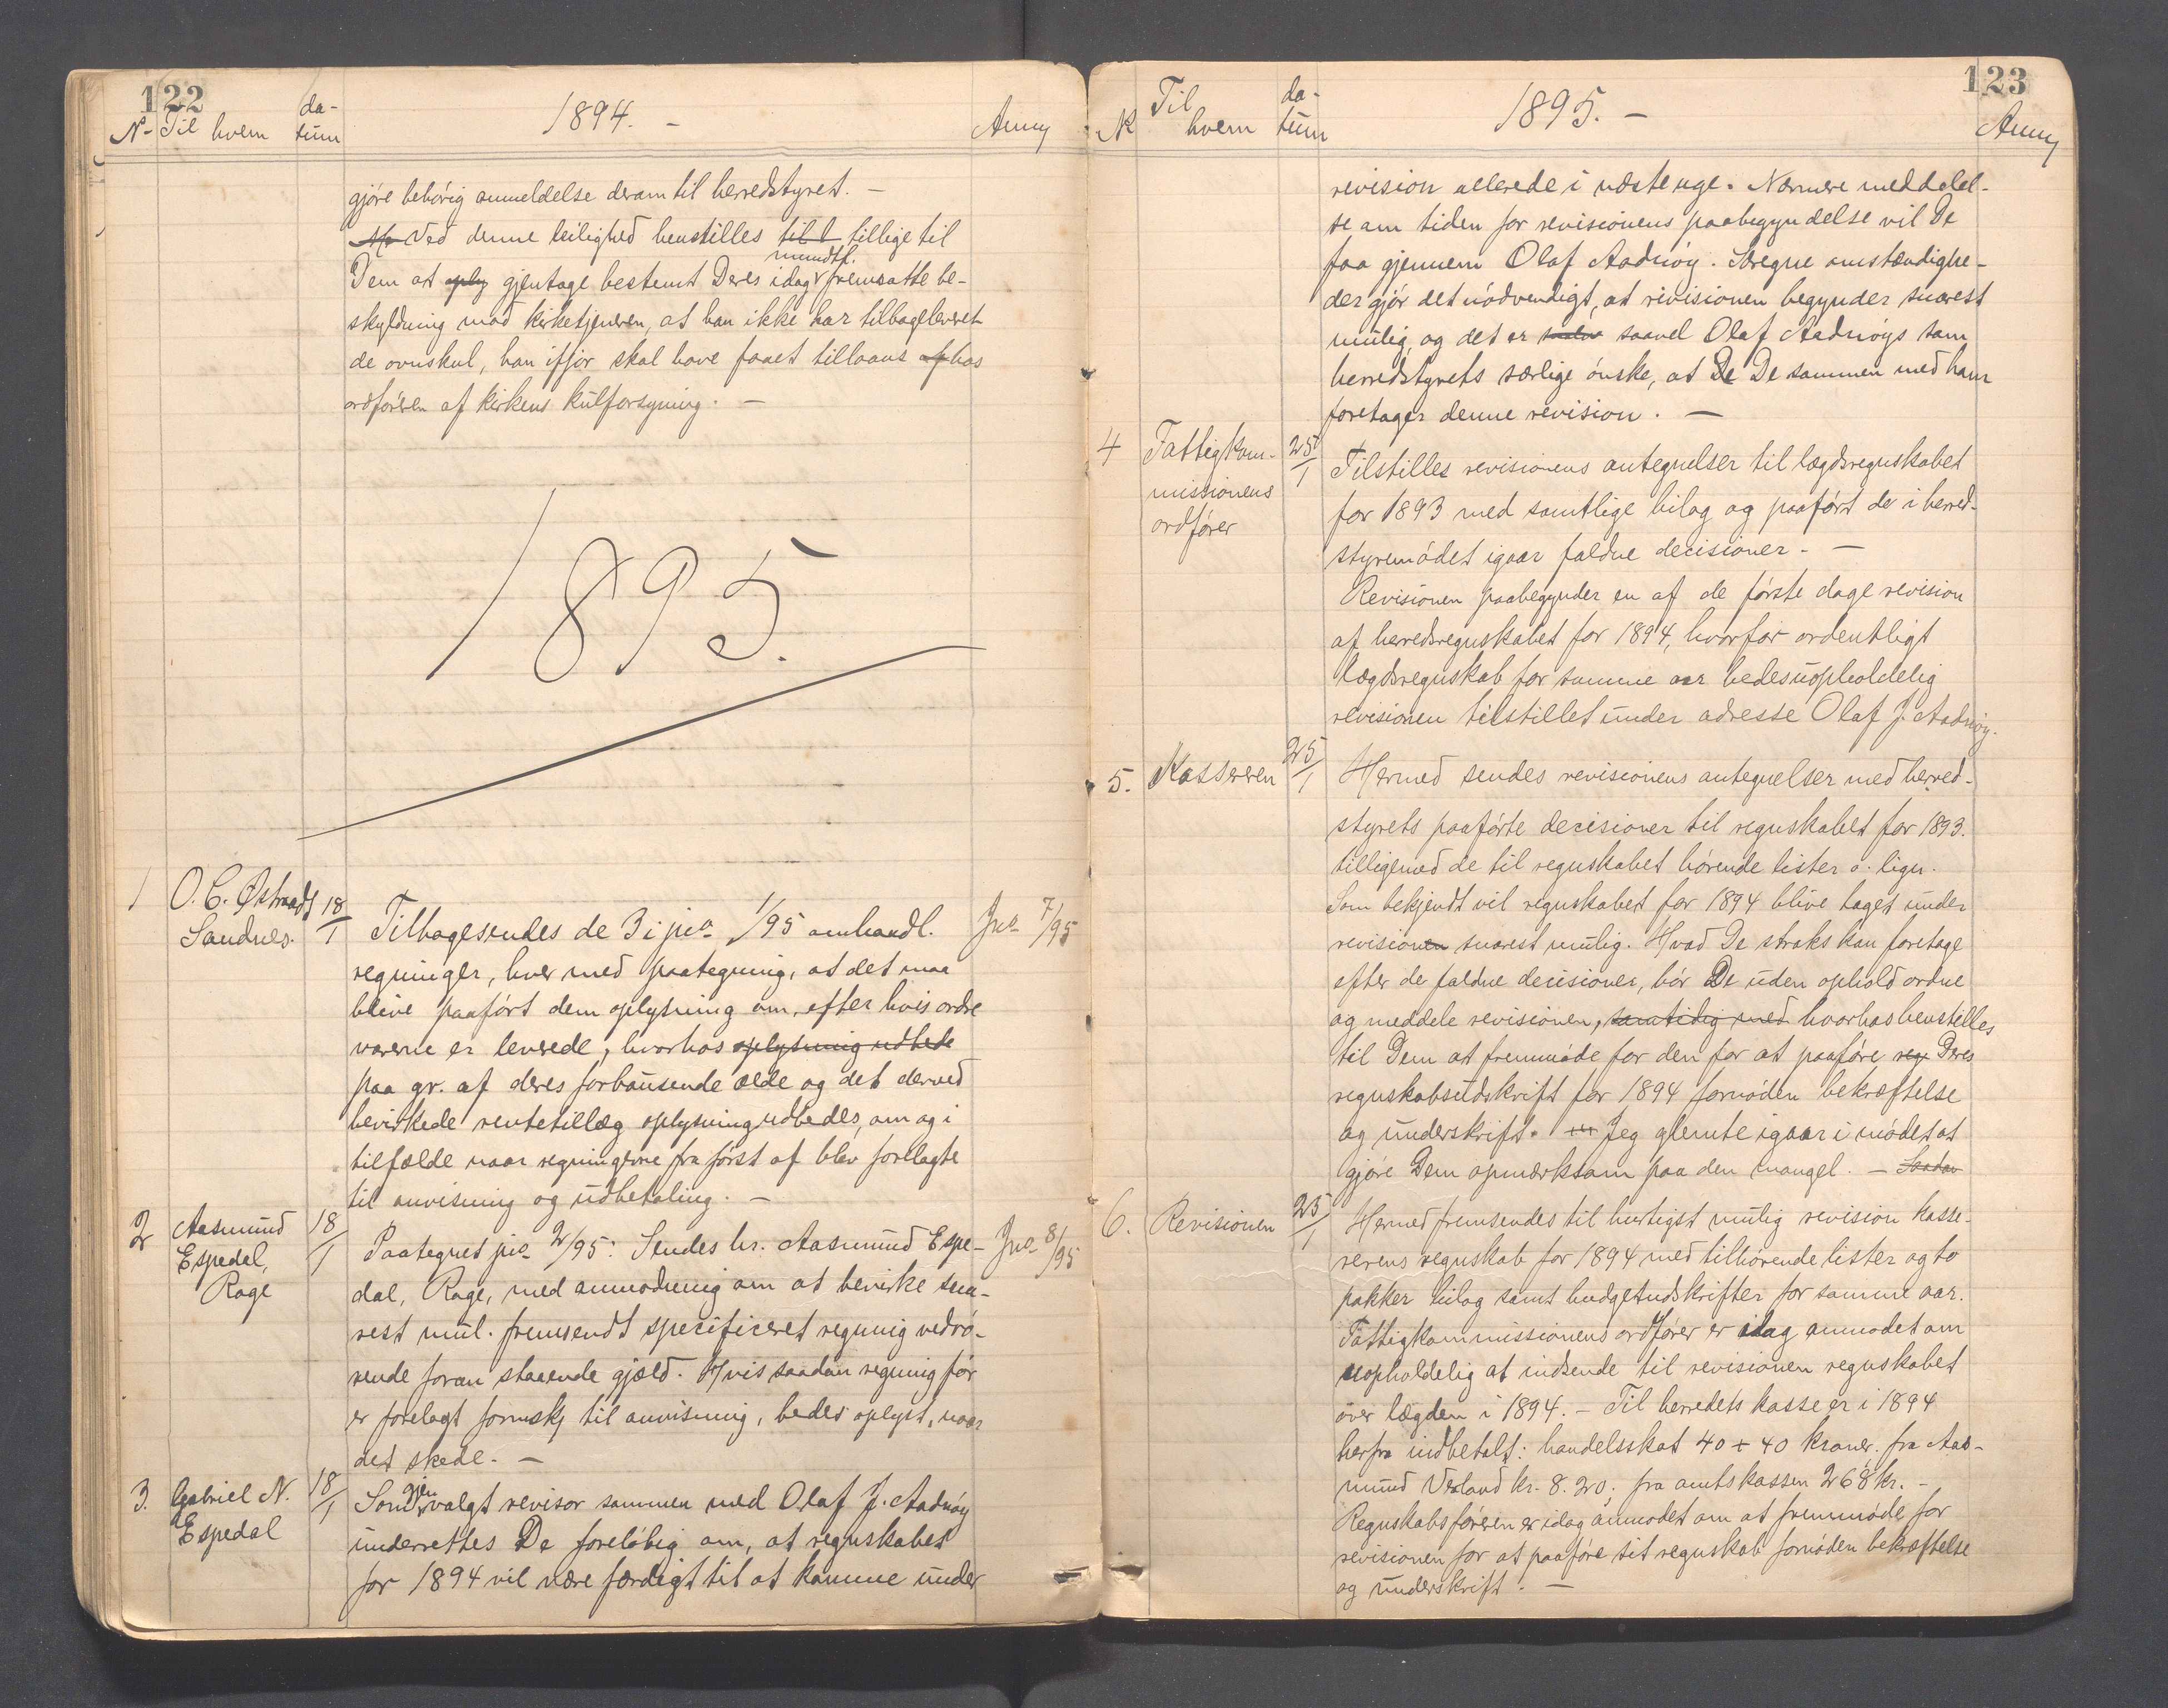 122
N- Til hvem da-tum 1894. - Anm
gjøre behörig anmeldelse derom til herredstyret. —
Ved denne leilighed henstilles til tillige til
Dem at oply gjentage bestemt Deres idag mundtl. fremsatte be-
skyldning mod kirketjeneren, at han ikke har tilbageleveret
de ovnskul, han ifjor skal have faaet tillaans af hos
ordföreren af kirkens kulforsyning. —
1895.
1 O. C. Østraadt Sandnes. 18/1 Tilbagesendes de 3 i jno 1/95 omhandl. Jno 7/95
regninger, hver med paategning, at det maa
blive paaført dem oplysning om, efter hvis ordre
varerne er leverede, hvorhos oplysning udbede
paa gr. af deres forbausende ælde og det derved
bevirkede rentetillæg oplysning udbedes, om og i
tilfælde naar regningerne fra først af blev forelagte
til anvisning og udbetaling. —
2 Aasmund Espedal, Rage 18/1 Paategnet jno 2/95: Sendes hr. Aasmund Espe- Jno 8/95
dal, Rage, med anmodning om at bevirke sna-
rest mul. fremsendt specificeret regning vedrö-
rende foran staaende gjæld. Hvis saadan regning før
er forelagt formskj til anvisning, bedes oplyst, naar
det skede. —
3. Gabriel N. Espedal 18/1 Som gjenvalgt revisor sammen med Olaf J. Aadnöy
underrettes De forelöbig om, at regnskabet
for 1894 vil være færdigt til at komme under
123
N Til hvem da-tum 1895. - Anm
revision allerede i næste uge. Nærmere meddelel-
se om tiden for revisionens paabegyndelse vil De
faa gjennem Olaf Aadnöy. Særegne omstændighe-
der gjör det nödvendigt, at revisionen begynder snarest
mulig, og det er saavel Olaf Aadnöys som
herredstyrets særlige önske, at De De sammen med ham
foretager denne revision. —
4 Fattigkom-missionens ordfører 25/1 Tilstilles revisionens antegnelser til lægdsregnskabet
for 1893 med samtlige bilag og paaført de i herred-
styremödet igaar faldne decisioner. —
Revisionen paabegynder en af de förste dage revision
af herredsregnskabet for 1894, hvorfor ordentligt
lægdsregnskab for samme aar bedes uopholdelig
revisionen tilstillet under adresse Olaf J. Aadnöy.
5. Kassereren 25/1 Hermed sendes revisionens antegnelser med herred-
styrets paaförte decisioner til regnskabet for 1893.
tilligemed de til regnskabet hörende lister o. lign.
Som bekjendt vil regnskabet for 1894 blive taget under
revisionen snarest mulig. Hvad De straks kan foretage
efter de faldne decisioner, bör De uden ophold ordne
og meddele revisionen, samtidig med hvorhos henstilles
til Dem at fremmöde for den for at paaföre reg Deres
regnskabsudskrift for 1894 fornöden bekræftelse
og underskrift. Jeg glemte igaar i mödet at
gjöre Dem opmærksom paa den mangel. — Saadan
6. Revisionen 25/1 Hermed fremsendes til hurtigst mulig revision kasse-
rerens regnskab for 1894 med tilhörende lister og to
pakker bilag samt budgetudskrifter for samme aar.
Fattigkommissionens ordfører er idag anmodet om
uopholdelig at indsende til revisionen regnskabet
over lægden i 1894. — Til herredets kasse er i 1894
herfra indbetalt: handelsskat 40 + 40 kroner. fra Aas-
mund Veland kr. 8.20; fra amtskassen 268 kr. —
Regnskabsføreren er idag anmodet om at fremmöde for
revisionen for at paaföre sit regnskab fornöden bekræftelse
og underskrift. —